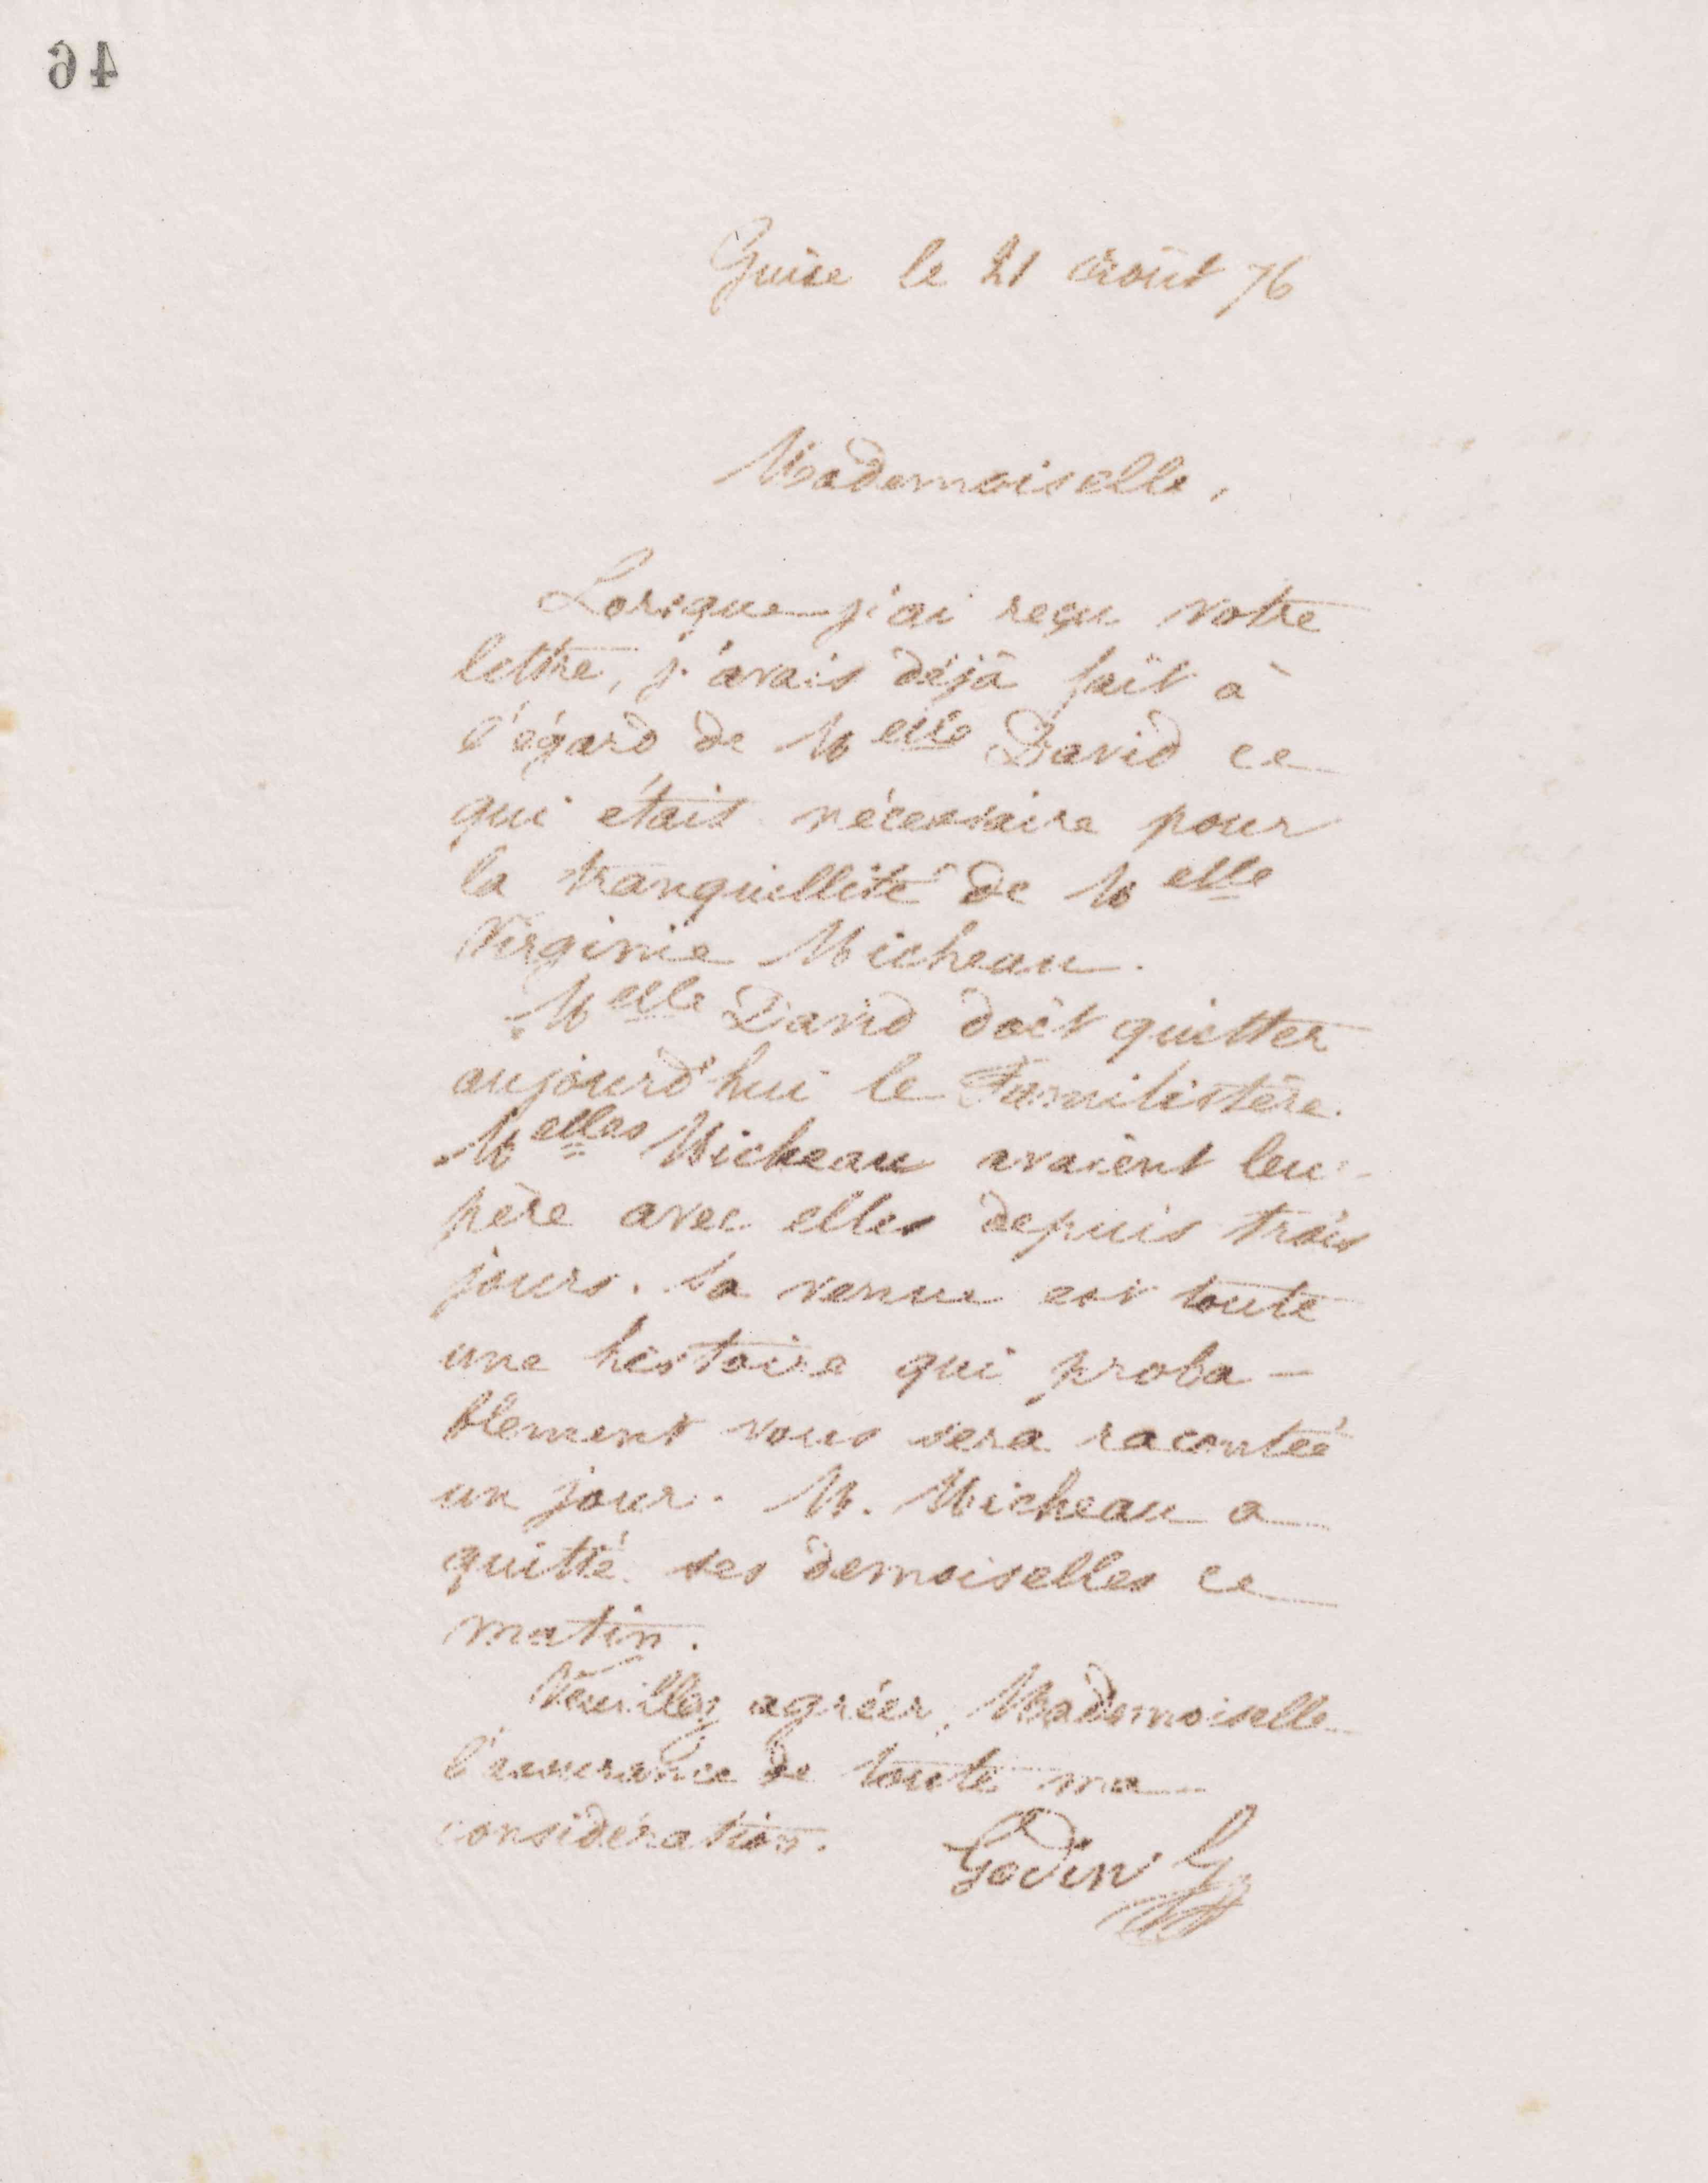 46
Guise le 21 août 76
Mademoiselle,
Lorsque j'ai reçu votre
lettre, j'avais déjà fait à
l'égard de Melle David ce
qui était nécessaire pour
la tranquillité de Melle
Virginie Micheau.
Melle David doit quitter
aujourd'hui le Familistère.
Melles Micheau avaient leur
père avec elles depuis trois
jours. Sa venue est toute
une histoire qui proba-
blement vous sera racontée
un jour. M. Micheau a
quitté ses demoiselles ce
matin.
Veuillez agréer, Mademoiselle
l'assurance de toute ma
considération.
Godin